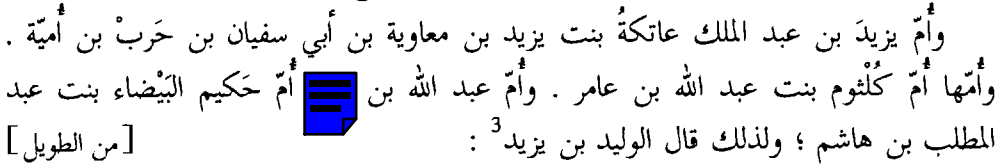 وأُمّ يزيدَ بن عبد الملك عاتكةُ بنت يزيد بن معاوية بن أبي سفيان بن حَربْ بن أُميّة .
وأُمّها أُمّ كُلْثوم بنت عبد الله بن عامر . وأُمّ عبد الله بن أُمّ حَكيم البَيْضاء بنت عبد
المطلب بن هاشم ؛ ولذلك قال الوليد بن يزيد3 : [من الطويل]